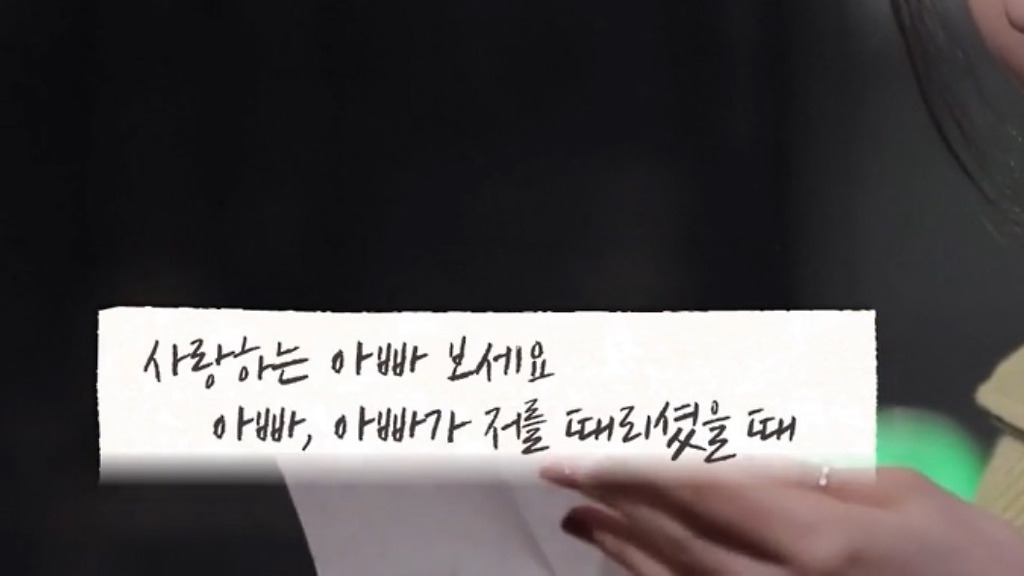 사랑하는 아빠 보세요
아빠, 아빠가 저를 때리셨을 때